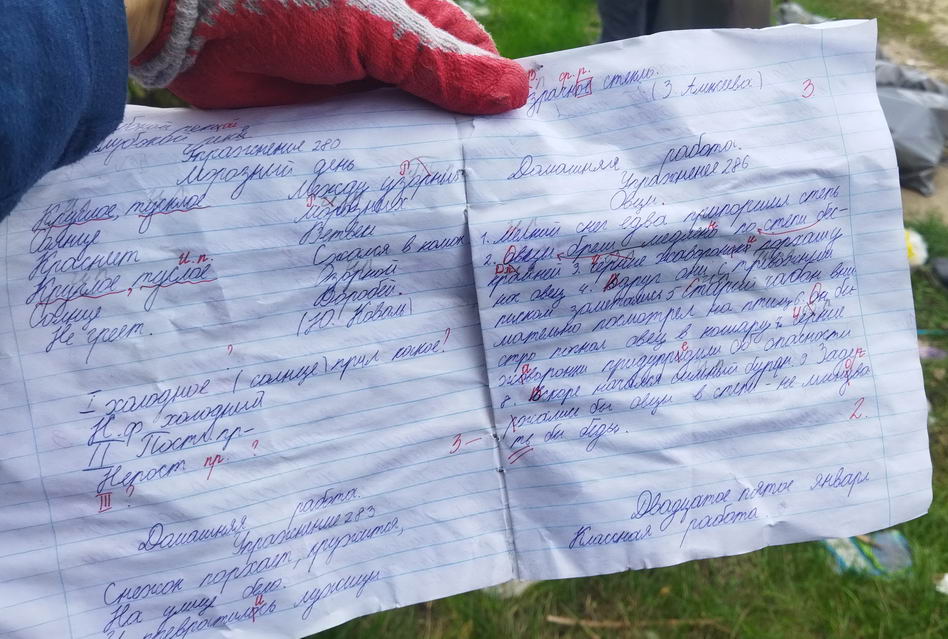 Упражнение 280
Морозный день
Круглое, тусклое
Солнце
Краснеет
Круглое, тусклое
и.п.
Солнце
Не греет.
Между узорных
Морозных
Ветвей
Сжался в комок
Зоркий
Воробей.
(Ю. Коваль)
?
I холодное (солнце) прил какое?
Н.ф. холодный
II Пост. пр-
Непост пр. ?
III ?
3-
Домашняя работа.
Упражнение 283
Снежок порхает, кружится,
На улице бело.
И превратились лужицы
ф.р.
стекло.
(З. Алексеева)
3
Домашняя работа.
Упражнение 286
Овцы.
1. Мелкий снег едва припорошил степь
2. Овцы брели медлено по степи бес-
крайней 3. Черние жаворонки
нок овец 4. Вдруг они
писком заметались 5 Старый чабан вни
мательно посмотрел на птиц 6. Он бы
стро погнал овец в кошару 7. Черние
жаворонки придупридили об опасности
8. Вскоре начался сильный буран. 9 Задер
жались бы овцы в степи - не миновать
бы беды.
2.
Двадцатое пятое январь
Классная работа.